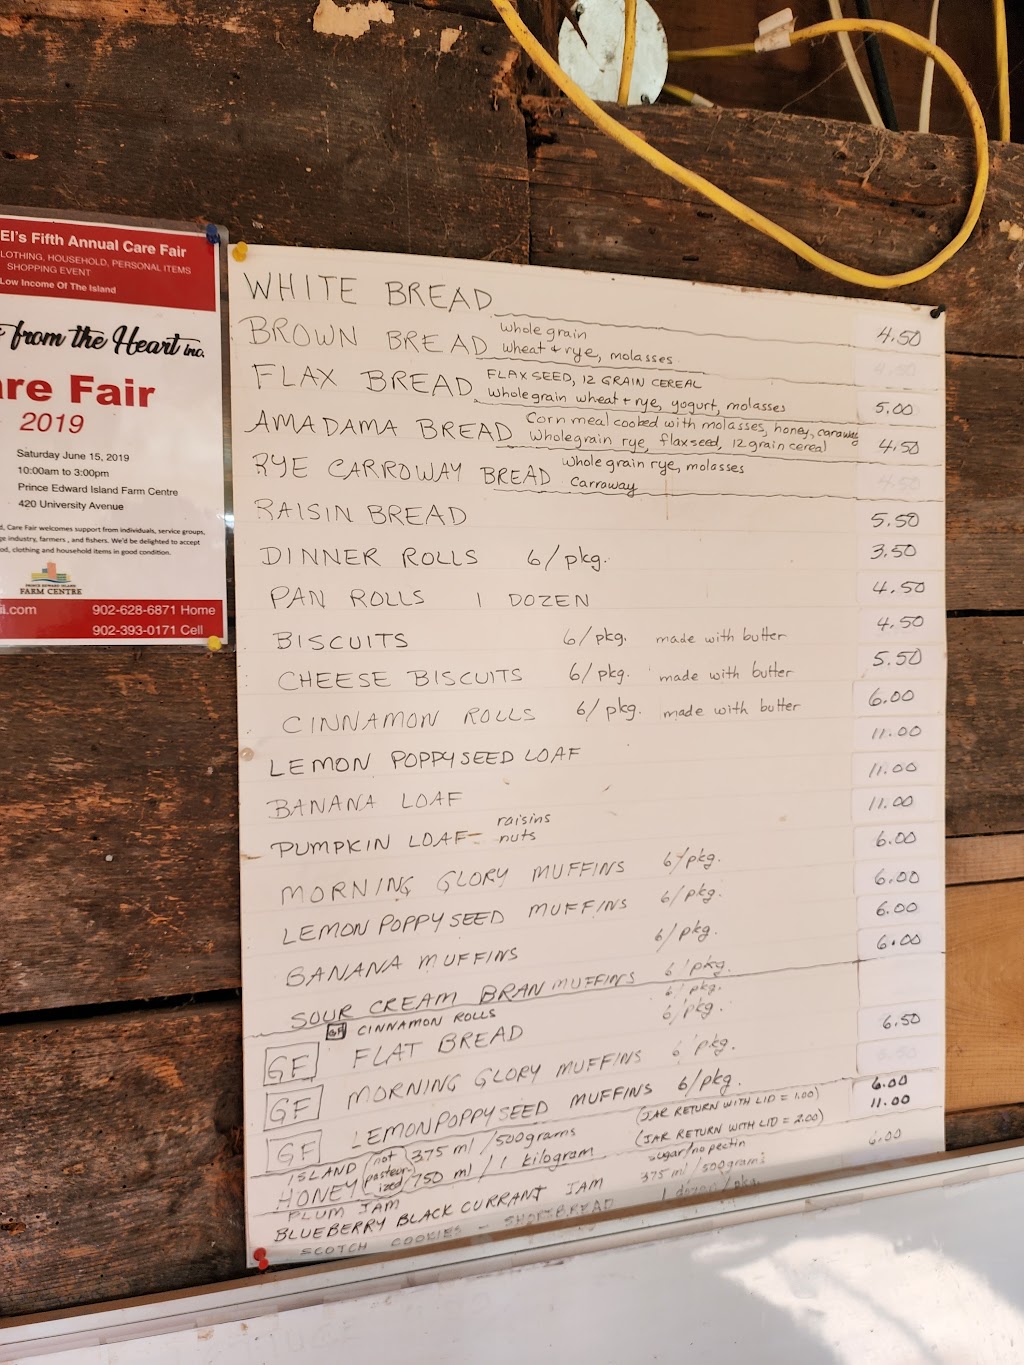 EI's Fifth Annual Care Fair
LOTHING, HOUSEHOLD, PERSONAL ITEMS
SHOPPING EVENT
Low Income Of The Island
from the Heart inc.
are Fair
2019
Saturday June 15, 2019
10:00am to 3:00pm
Prince Edward Island Farm Centre
420 University Avenue
d, Care Fair welcomes support from individuals, service groups,
ge industry, farmers , and fishers. We'd be delighted to accept
od, clothing and household items in good condition.
PRINCE EDWARD ISLAND
FARM CENTRE
il.com 902-628-6871 Home
902-393-0171 Cell
WHITE BREAD 4.50
BROWN BREAD whole grain
wheat + rye, molasses 4.50
FLAX BREAD FLAX SEED, 12 GRAIN CEREAL
whole grain wheat + rye, yogurt, molasses 5.00
AMADAMA BREAD Corn meal cooked with molasses, honey, caraway
Wholegrain rye, flaxseed, 12 grain cereal 4.50
RYE CARROWAY BREAD whole grain rye, molasses
Carroway 4.50
RAISIN BREAD 5.50
DINNER ROLLS 6/pkg. 3.50
PAN ROLLS 1 DOZEN 4.50
BISCUITS 6/pkg. made with butter 4.50
CHEESE BISCUITS 6/pkg. made with butter 5.50
CINNAMON ROLLS 6/pkg. made with butter 6.00
LEMON POPPYSEED LOAF 11.00
BANANA LOAF 11.00
PUMPKIN LOAF- raisins
nuts 11.00
MORNING GLORY MUFFINS 6/pkg. 6.00
LEMON POPPYSEED MUFFINS 6/pkg. 6.00
BANANA MUFFINS 6/pkg. 6.00
SOUR CREAM BRAN MUFFINS 6/pkg. 6.00
GF CINNAMON ROLLS 6/pkg.
GF FLAT BREAD 6/pkg. 6.50
GF MORNING GLORY MUFFINS 6/pkg.
GF LEMONPOPPYSEED MUFFINS 6/pkg.
ISLAND (not 375 ml /500grams (JAR RETURN WITH LID = 1.00) 6.00
HONEY pasteur
ized) 750 ml / 1 kilogram (JAR RETURN WITH LID = 2.00) 11.00
PLUM JAM sugar/no pectin
BLUEBERRY BLACK CURRANT JAM 375 ml /500grams 6.00
SCOTCH COOKIES - SHORTBREAD 1 dozen/pkg.